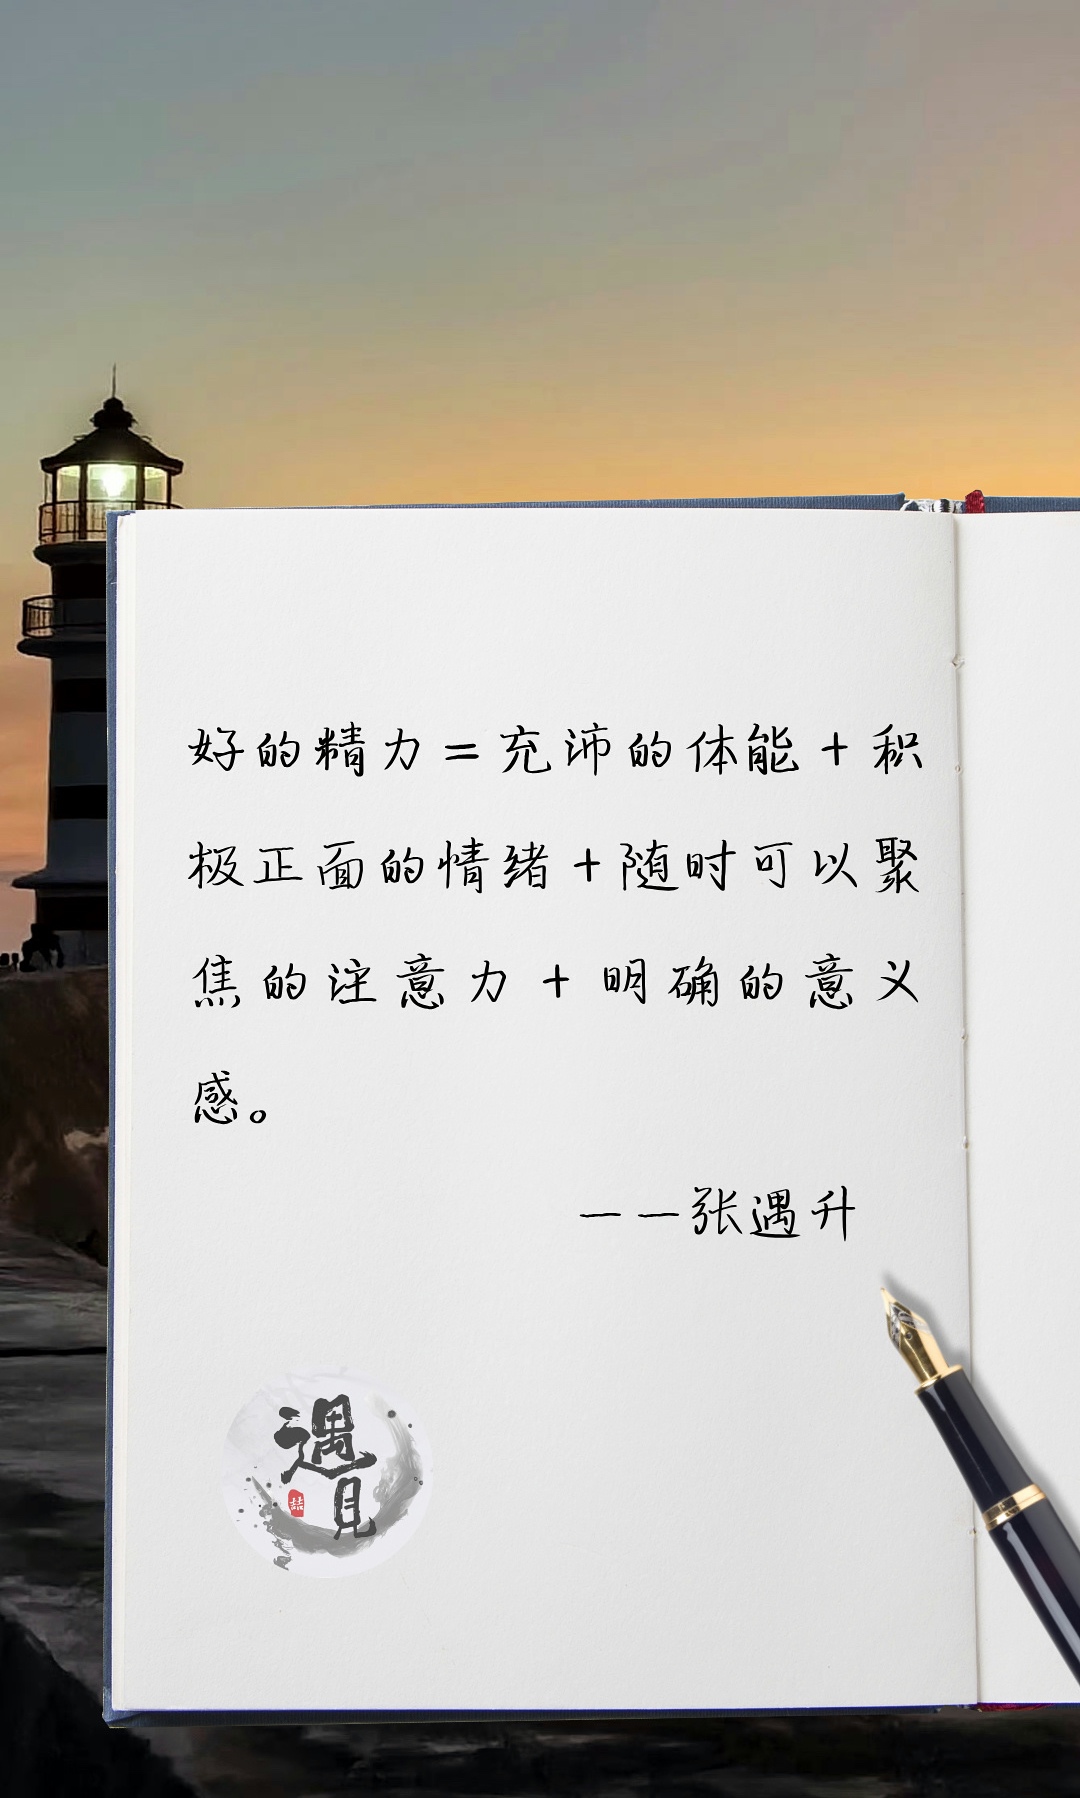 好的精力=充沛的体能+积
极正面的情绪+随时可以聚
焦的注意力+明确的意义
感。
——张遇升
遇
见